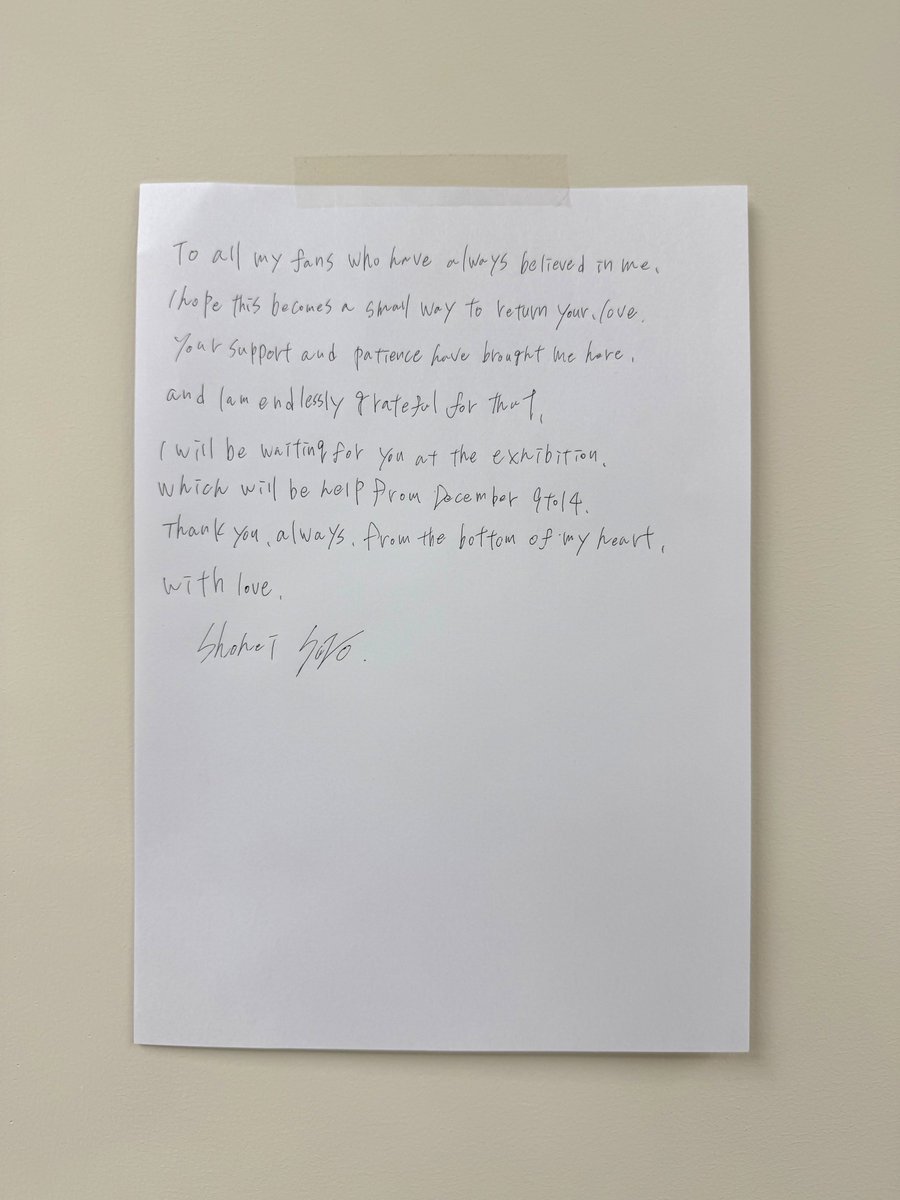 To all my fans who have always believed in me,
I hope this becomes a small way to return your, love.
Your support and patience have brought me here,
and I am endlessly grateful for that,
I will be waiting for you at the exhibition,
which will be help from December 9 to 14.
Thank you, always, from the bottom of my heart,
with love,
Shohei